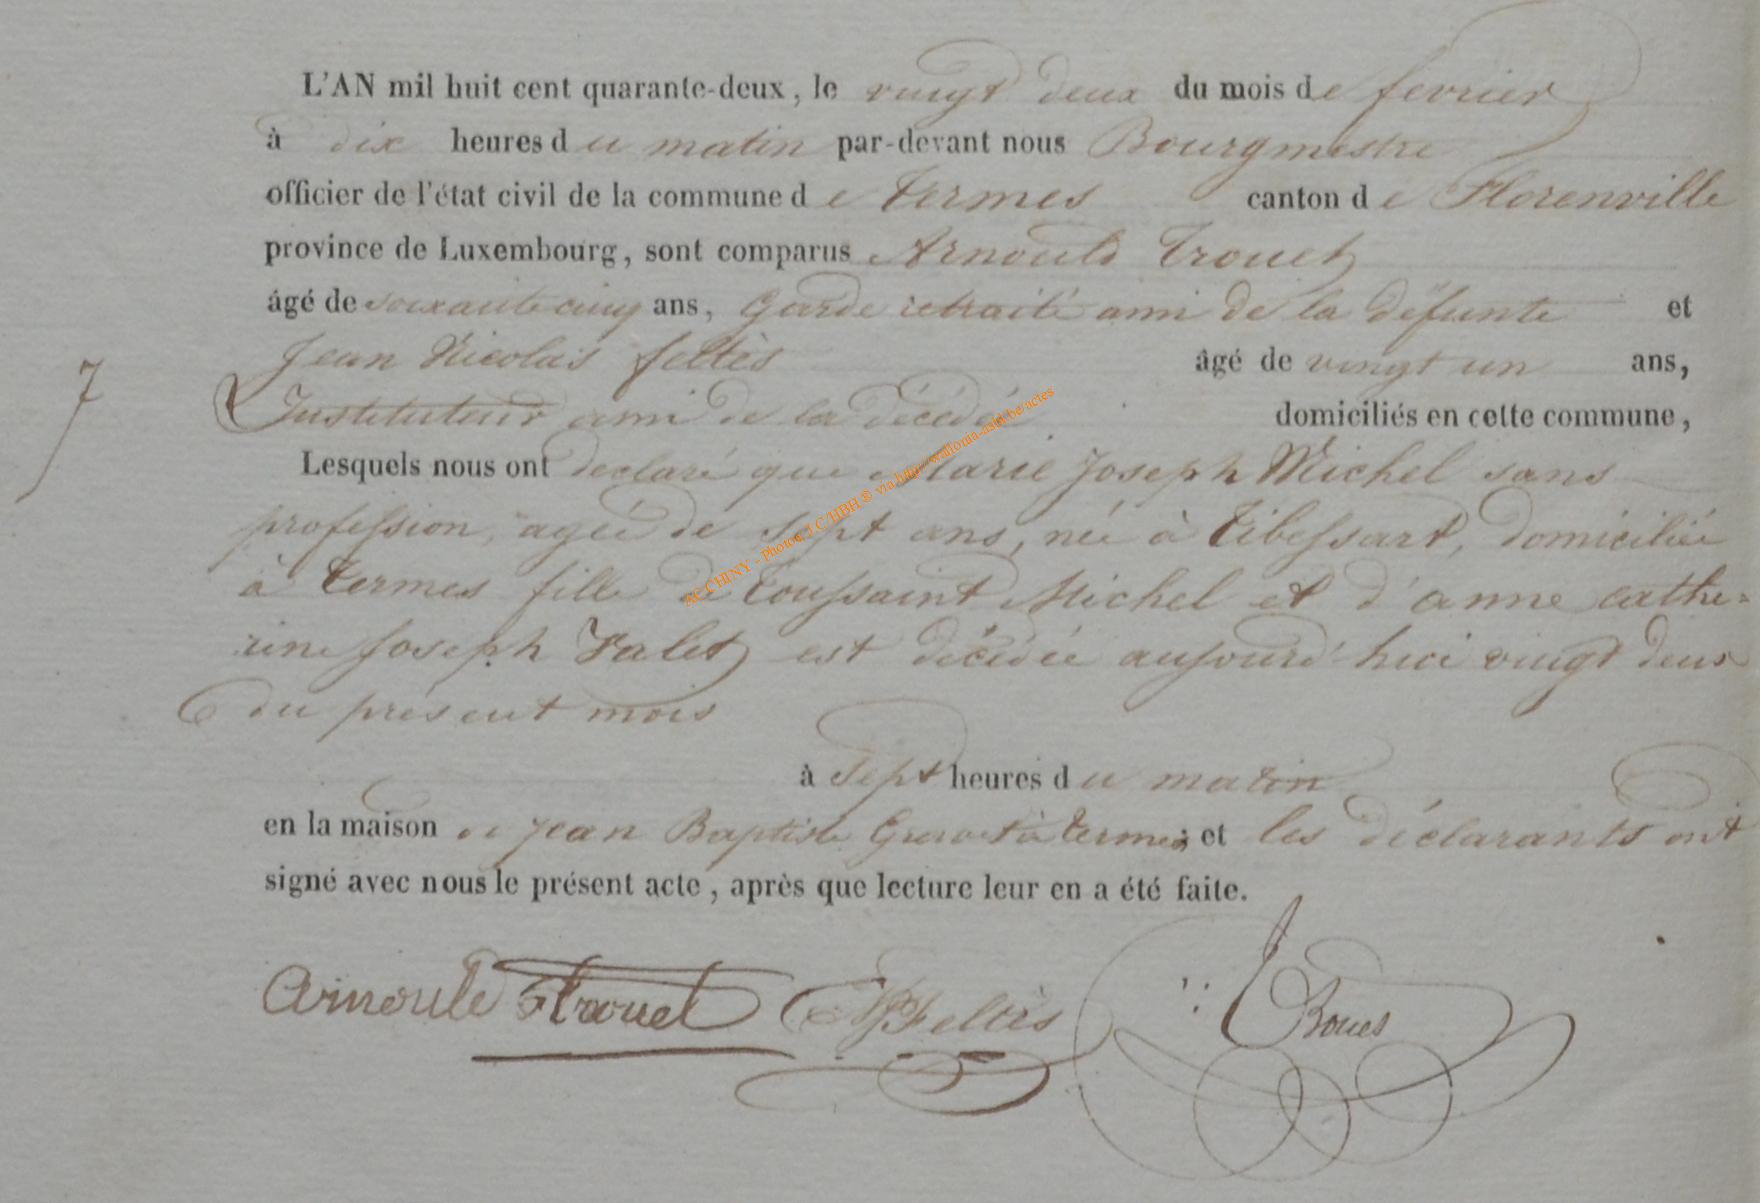 L'AN mil huit cent quarante-deux, le vingt deux du mois de fevrier
à dix heures du matin par-devant nous Bourgmestre
officier de l'état civil de la commune de Termes canton de Florenville
province de Luxembourg, sont comparus Arnould Trouet
âgé de soixante cinq ans, Garde retraité ami de la défunte et
Jean Nicolas feltès âgé de vingt un ans,
7
Instituteur ami de la décédée domiciliés en cette commune,
Lesquels nous ont declaré que Marie Joseph Michel sans
profession, agée de sept ans, née à Tibessart, domiciliée
à Termes fille de Toussaint Michel et d'anne cathe=
rine Joseph Valet est décédée aujourd'hui vingt deux
du présent mois
à Sept heures du matin
en la maison de Jean Baptiste à Termes; et les déclarants ont
signé avec nous le présent acte, après que lecture leur en a été faite.
Arnould Trouet JN Feltès
AC CHINY - Photos J.C/HBH ® via http://wallonia-asbl.be/actes